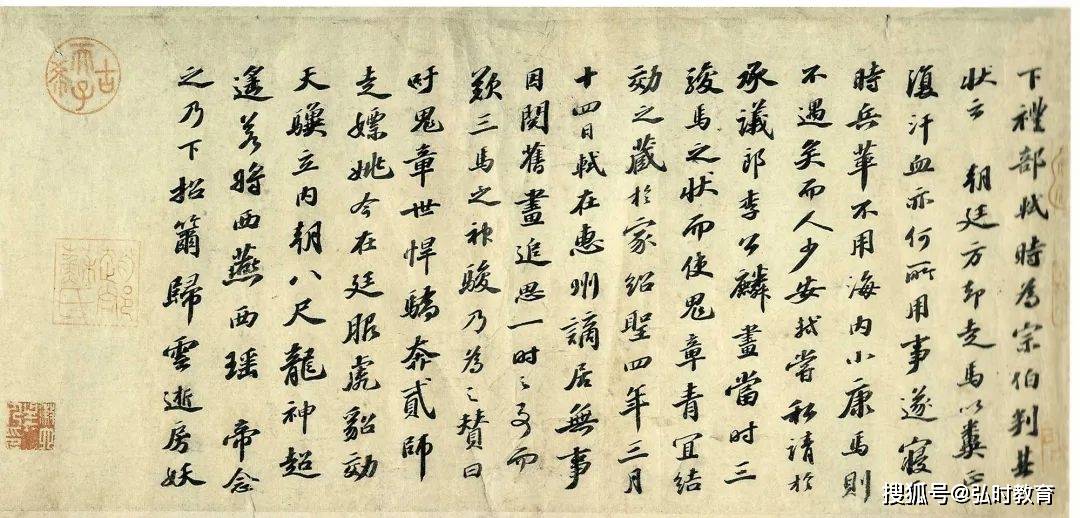 下禮部軾時為宗伯判其
狀云 朝廷方却走馬以糞正
復汗血亦何所用事遂寢于
時兵革不用海内小康馬則
不遇矣而人少安軾嘗私請於
承議郎李公麟畫當時三
駿馬之狀而使鬼章青宜結
効之藏於家紹聖四年三月
十四日軾在惠州謫居無事
因閱舊畫追思一時之事而
歎三馬之神駿乃為之贊曰
吁鬼章世悍驕奔貳師
走嫖姚今在廷服虎貂効
天驥立内朝八尺龍神超
遙若將西燕西瑶 帝念
之乃下招籋歸雲逝房妖
古希天子
搜狐号@弘时教育